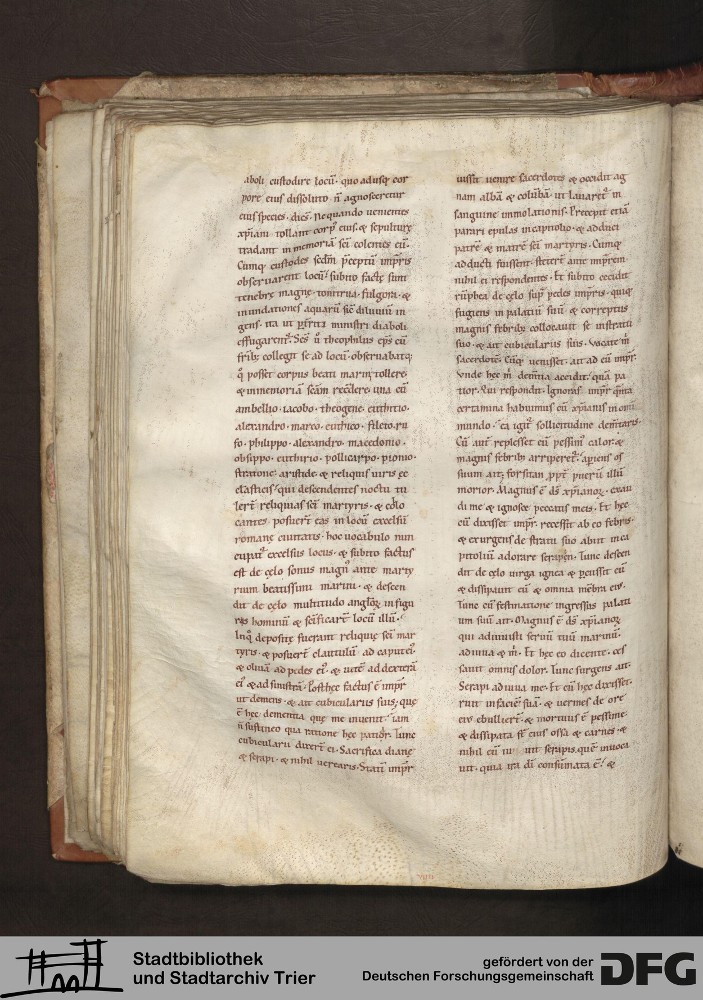 aboli custodire locū· quo adusq; cor
pore eius dissoluto ñ agnosceretur
eius species· dicēs· Ne quando uenientes
xp̄iani tollant corpꝰ eius· & sepulturę
tradant in memoriā sc̄i colentes eū·
Cumq; custodes secdm̄ p̄ceptū imp̄ris
obseruarent locū· subito factę sunt
tenebrę magnę· tonitrua· fulgora· &
inundationes aquarū sic diluuiū in
gens· ita ut ministri diaboli
effugarent᷑· Theophilus ep̄s cū
frīb; collegit se ad locū· obseruabatq;
posset corpus beati marini tollere·
& in memoriā una cū
ambellio· iacobo· theogene· euthitio·
alexandro· marco· euthico· fileto· ru
fo· philippo· alexandro· macedonio·
obsippo· euthirio· pollicarpo· pionio·
stratone· aristide· & reliquis uiris ec
clesticis· qui descendentes noctu tu
lert̄ reliquias sc̄i martyris· &
cantes· posuert̄ eas in locū excelsū
romanę ciuitatis· hoc uocabulo nun
cupat᷑ excelsus locus· & subito factus
est de cęlo sonus magnꝰ ante marty
rium beatissimi marini· & descen
dit de cęlo multitudo anglōꝝ in figu
ris hominū & locū illū·
In quo depositę fuerant reliquię sc̄i mar
tyris· & posuert̄ clauulū ad caput eiꝰ·
& oliuā ad pedes eiꝰ· & uitē ad dexterā
eiꝰ & ad sinistrā· Posthęc factus ē imp̄r
ut demens· & ait cubiculariis suis; quę
ē hęc dementia que me inuenit· iam
ñ sustineo qua ratione hęc patior· Tunc
cubicularii dixert̄ ei· Sacrifica dianę
& serapi· & nihil uerearis· Statī imp̄r
iussit uenire sacerdotes & occidit ag
nam albā & colūbā· ut lauaret᷑ in
sanguine immolationis· Precepit etiā
parari epulas in capitolio· & adduci
patrē & matrē sc̄i martyris· Cumq;
adducti fuissent· stetert̄ ante imp̄rem·
nihil ei respondentes· Et subito cecidit
de cęlo sup̄ pedes imp̄ris· quiq;
fugiens in palatiū suū· & correptus
magnis febrib; collocauit se in stratu
suo· & ait cubiculariis suis· Vocate m̄
sacerdotē· Cūq; uenisset· ait ad eū imp̄r·
Vnde hęc m̄ accidit· quā pa
tior· Qui respondit· Ignoras imp̄r
certamina habuimus cū xp̄ianis in omī
mundo· ea igit᷑ sollicitudine
Cū aūt replesset eū pessimꝰ calor· &
magnis febrib; arriperet᷑· apiens os
suum ait; forsitan ꝓpt̄ puerū illū
morior· Magnus ē ds̄ xp̄ianoꝝ· exau
di me & ignosce peccatis meis· Et hęc
cū dixisset imp̄r· recessit ab eo febris·
& exurgens de stratu suo abiit in ca
pitoliū adorare serapen· Tunc descen
dit de cęlo uirga ignea & p̄cussit eū
& dissipauit eū & omnia mēbra eiꝰ·
Tunc cū festinatione ingressus palati
um suū ait· Magnus ē ds̄ xp̄ianoꝝ
qui adiuuisti seruū tuū marinū·
adiuua & m̄· Et hęc eo dicente· ces
sauit omnis dolor· Tunc surgens ait·
Serapi adiuua me· Et cū hęc dixisset·
ruit in faciē suā· & uermes de ore
eiꝰ ebulliert̄· & mortuus ē pessime·
& dissipata st̄ eiꝰ ossa & carnes· &
nihil eū uit serapis quē inuoca
uit· quia ira dī consūmata ē· &
VIIII
Stadtbibliothek
und Stadtarchiv Trier
gefördert von der
Deutschen Forschungsgemeinschaft
DFG